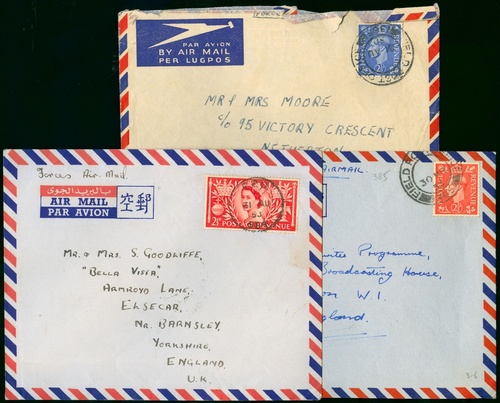 FORCES
PAR AVION
BY AIR MAIL
PER LUGPOS
REVENUE
MR & MRS MOORE
c/o 95 VICTORY CRESCENT
NETHERTON
Forces Air Mail.
بالبريد الجوى
AIR MAIL
PAR AVION
空郵
2½D POSTAGE REVENUE
Mr. & Mrs. S. GOODLIFFE,
"BELLA VISTA",
ARMROYD LANE,
ELSECAR,
NR. BARNSLEY,
YORKSHIRE,
ENGLAND,
U.K.
AIRMAIL
385
FIELD
30
REVENUE
Programme,
Broadcasting House,
W.1.
England.
3-6